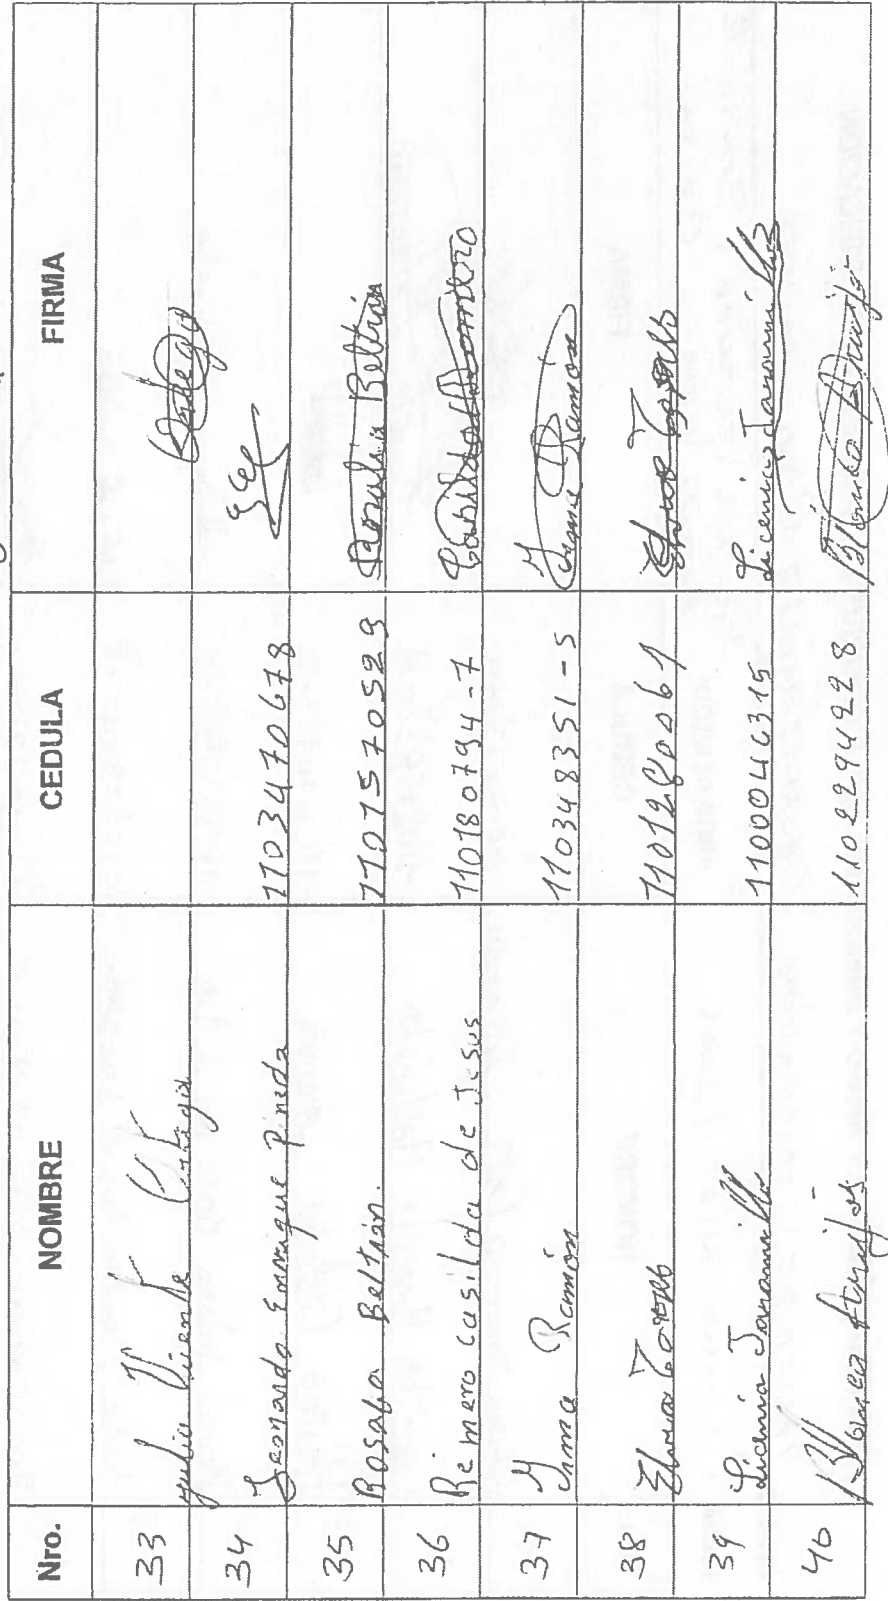 Nro. NOMBRE CEDULA FIRMA
33 Julio Vicente Ortega Ortega
34 Leonardo Enrique Pineda 1103470678
35 Rosalia Beltrán. 1101570529 Rosalia Beltrán
36 Romero Casilda de Jesus 110180794-7 Casilda Romero
37 Irma Ramón 110348351-5 Irma Ramón
38 Elvia Torres 1101280061 Elvia Torres
39 Licenia Jaramillo 1100046315 Licenia Jaramillo
40 Blanca Armijos 1102294228 Blanca Armijos